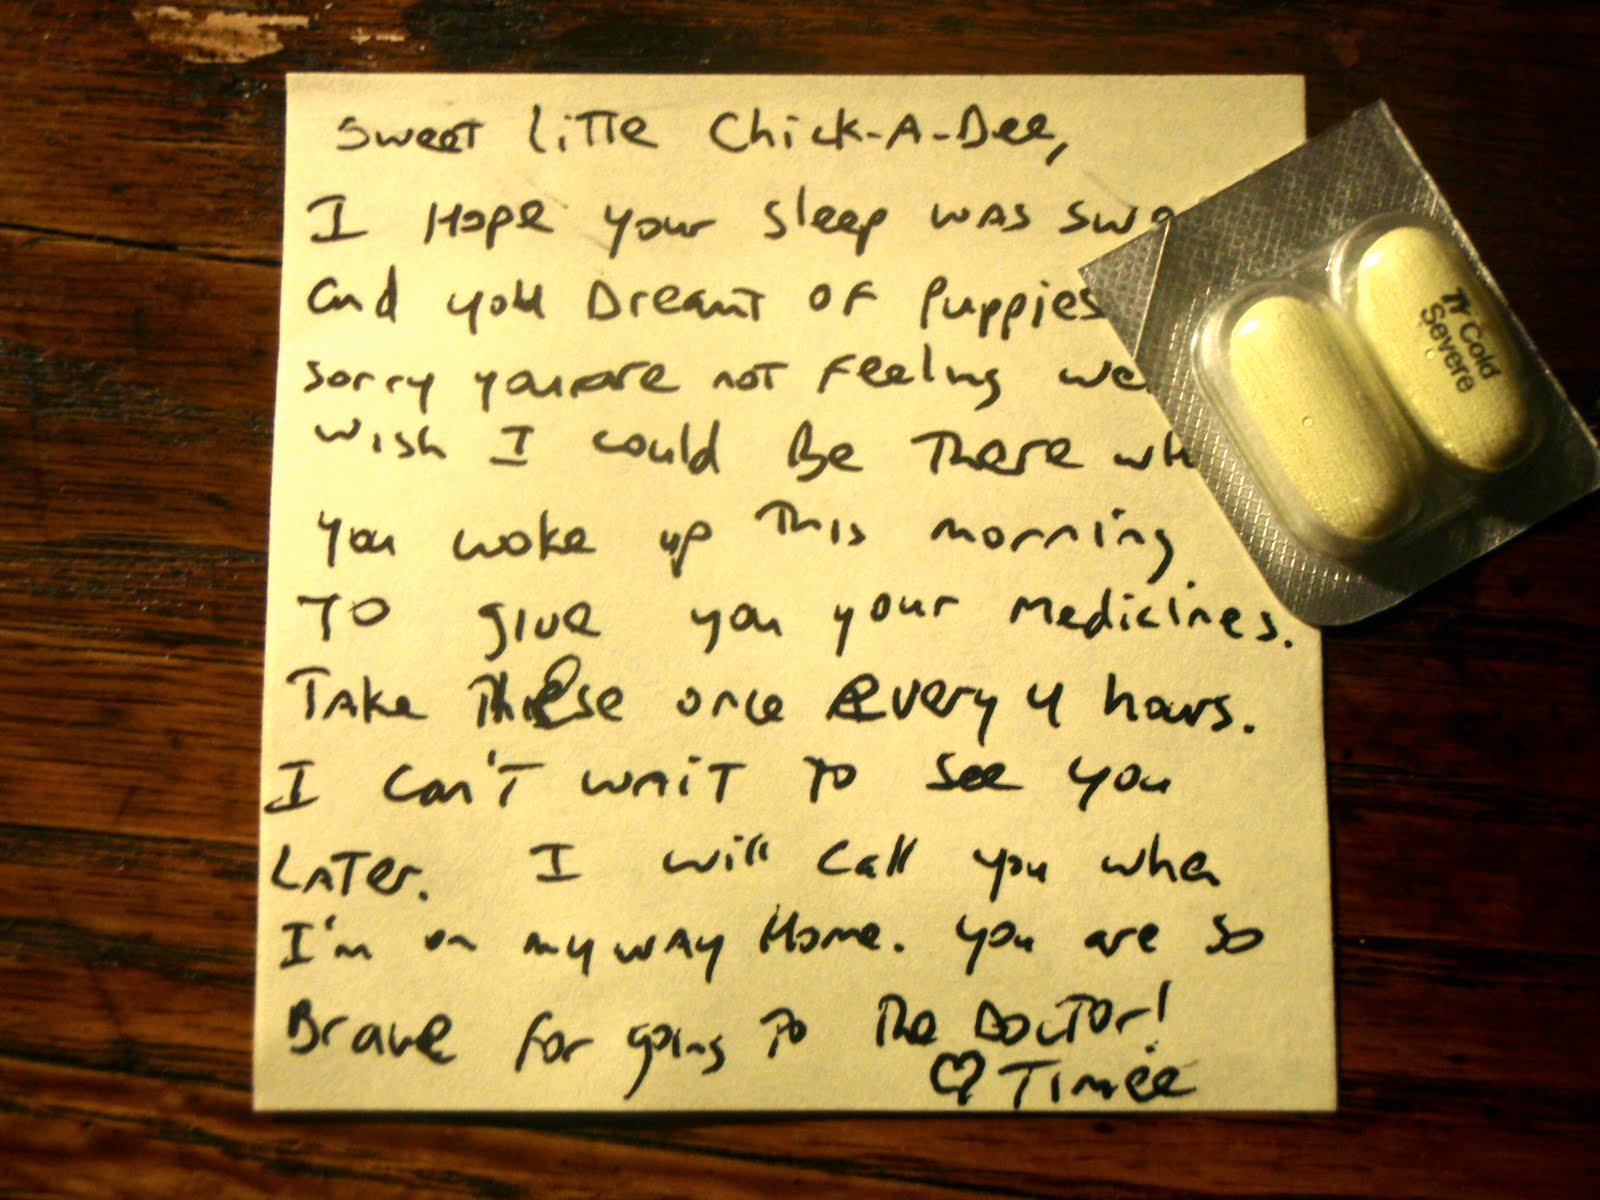 Sweet little Chick-A-Dee,
I Hope your sleep was
and you Dreamt of Puppies
sorry you are not Feeling
wish I could Be There
you woke up This morning
To give you your medicines.
Take These once every 4 hours.
I can't wait to see you
Later. I will call you when
I'm on my way Home. you are so
Brave for going to The Doctor!
♡ Timee
Cold
Severe